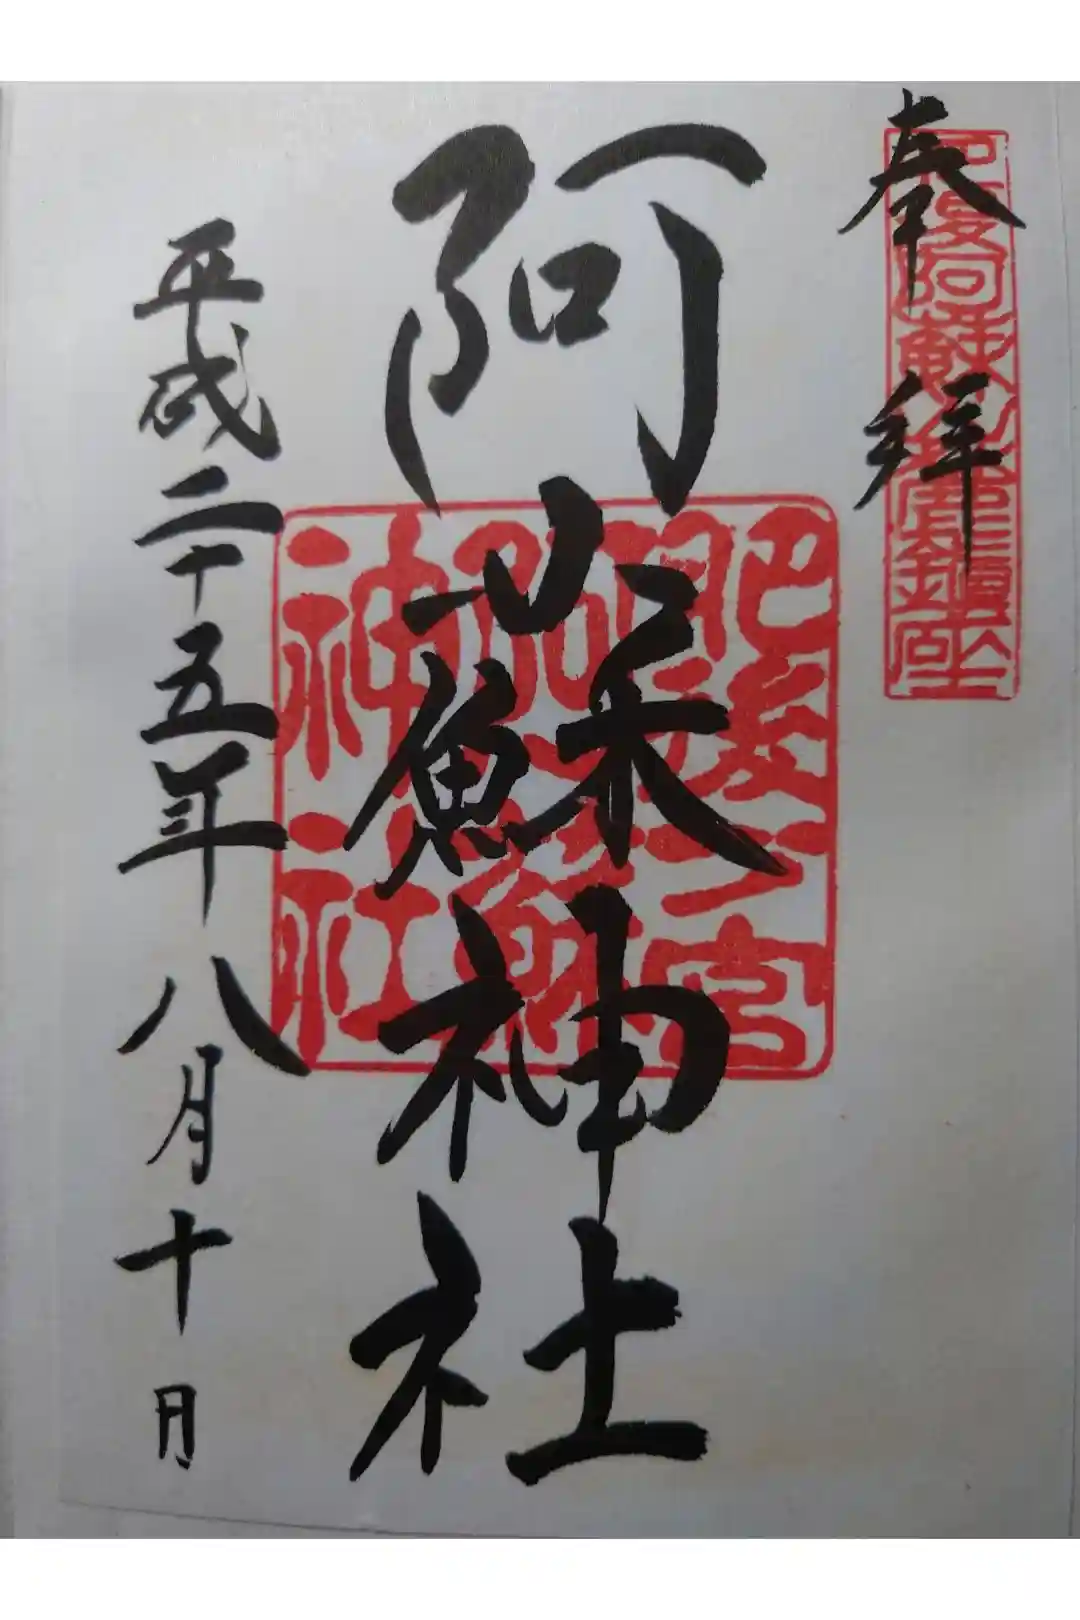 奉拝
肥後阿蘇山麓鎮座
阿蘇神社
肥後一宮
阿蘇
神社
平成二十五年八月十日